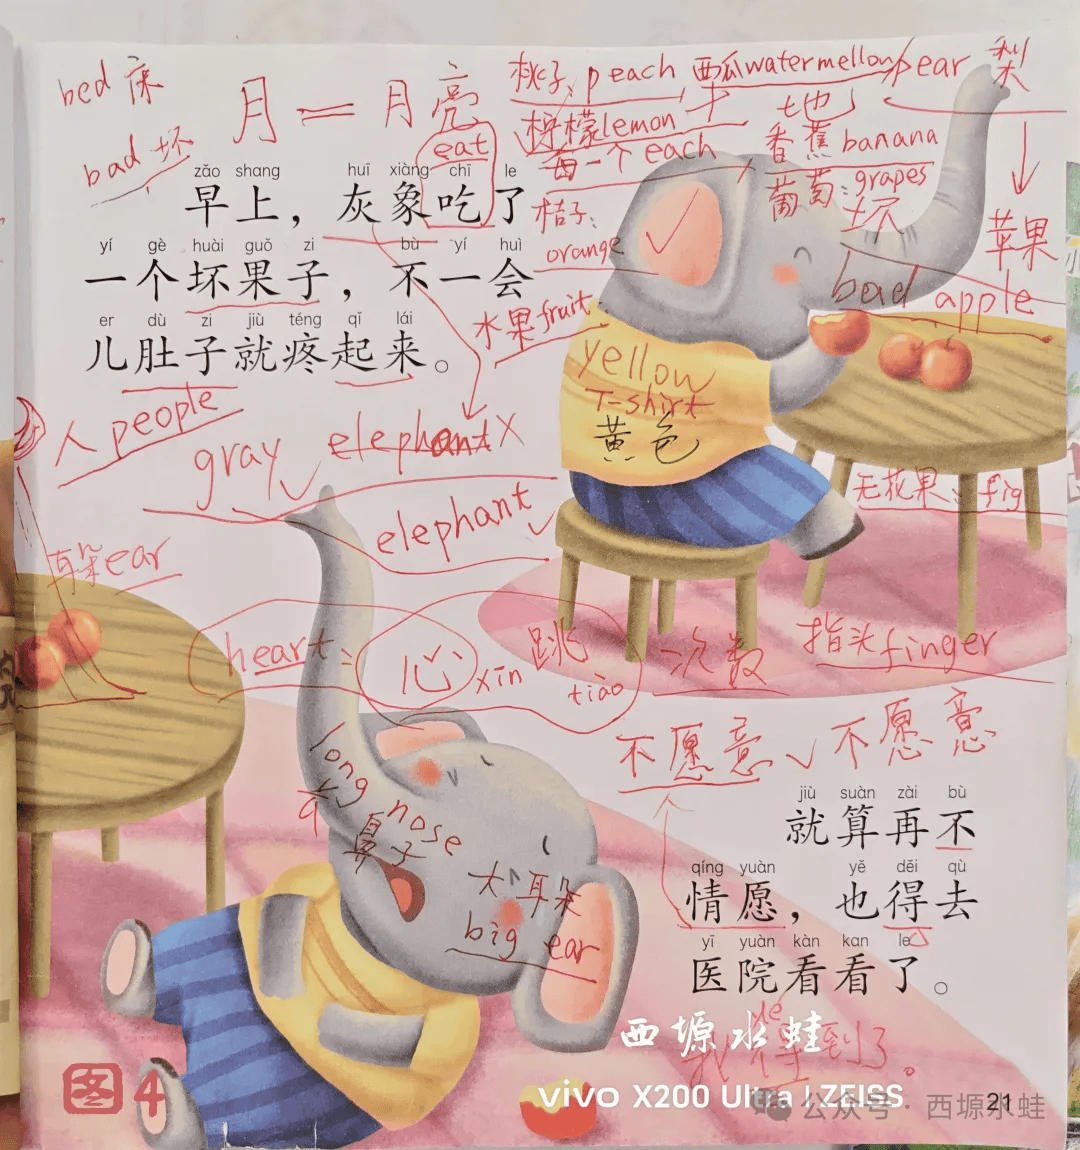 bed 床
bad 坏
月 = 月亮
eat
桃子: peach
西瓜 watermellon
pear 梨
柠檬 lemon
每一个 each
土地
香蕉 banana
葡萄: grapes
桔子:
orange
坏
苹果
bad apple
水果 fruit
zǎo shang huī xiàng chī le
早上，灰象吃了
yí gè huài guǒ zi bù yí huì
一个坏果子，不一会
er dù zi jiù téng qǐ lái
儿肚子就疼起来。
人 people
gray
elephant X
elephant
yellow
T-shirt
黄色
无花果: fig
耳朵 ear
heart: 心 xīn 跳 tiào
次数
指头 finger
不愿意 不愿意
long nose
鼻子
大耳朵
big ear
jiù suàn zài bù
就算再不
qíng yuàn yě děi qù
情愿，也得去
yī yuàn kàn kan le
医院看看了。
de
我得到了。
西塬水蛙
vivo X200 Ultra | ZEISS
公众号 · 西塬水蛙
图4
21